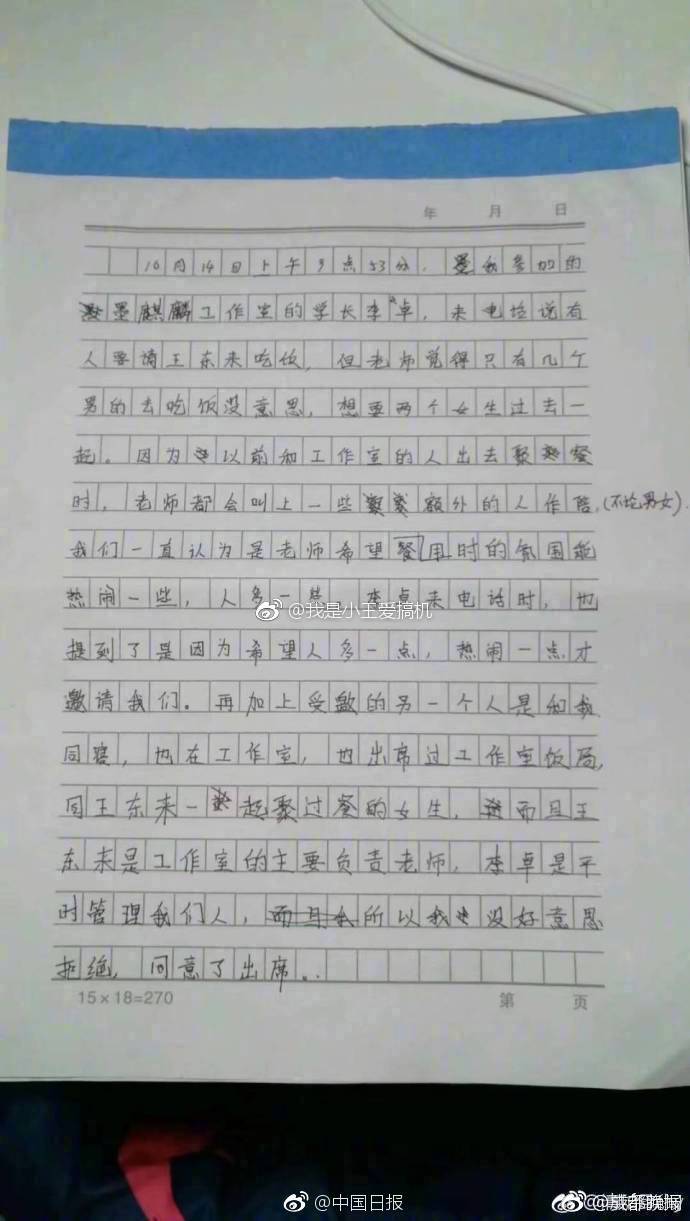 年 月 日
10月14日上午9点53分，我参加的
墨麒麟工作室的学长李卓，来电话说有
人要请王东来吃饭，但老师觉得只有几个
男的去吃饭没意思，想要两个女生过去一
起。因为以前和工作室的人出去聚餐
时，老师都会叫上一些额外的人作陪，(不论男女).
我们一直认为是老师希望餐用时的氛围能
热闹一些，人多一些，李卓来电话时，也
提到了是因为希望人多一点，热闹一点才
邀请我们。再加上受邀的另一个人是和我
同寝，也在工作室，也出席过工作室饭局，
同王东来一起聚过餐的女生，而且王
东来是工作室的主要负责老师，李卓是平
时管理我们人，所以我没好意思
拒绝，同意了出席。
15×18=270 第 页
@我是小王爱搞机
@中国日报
@成都晚报